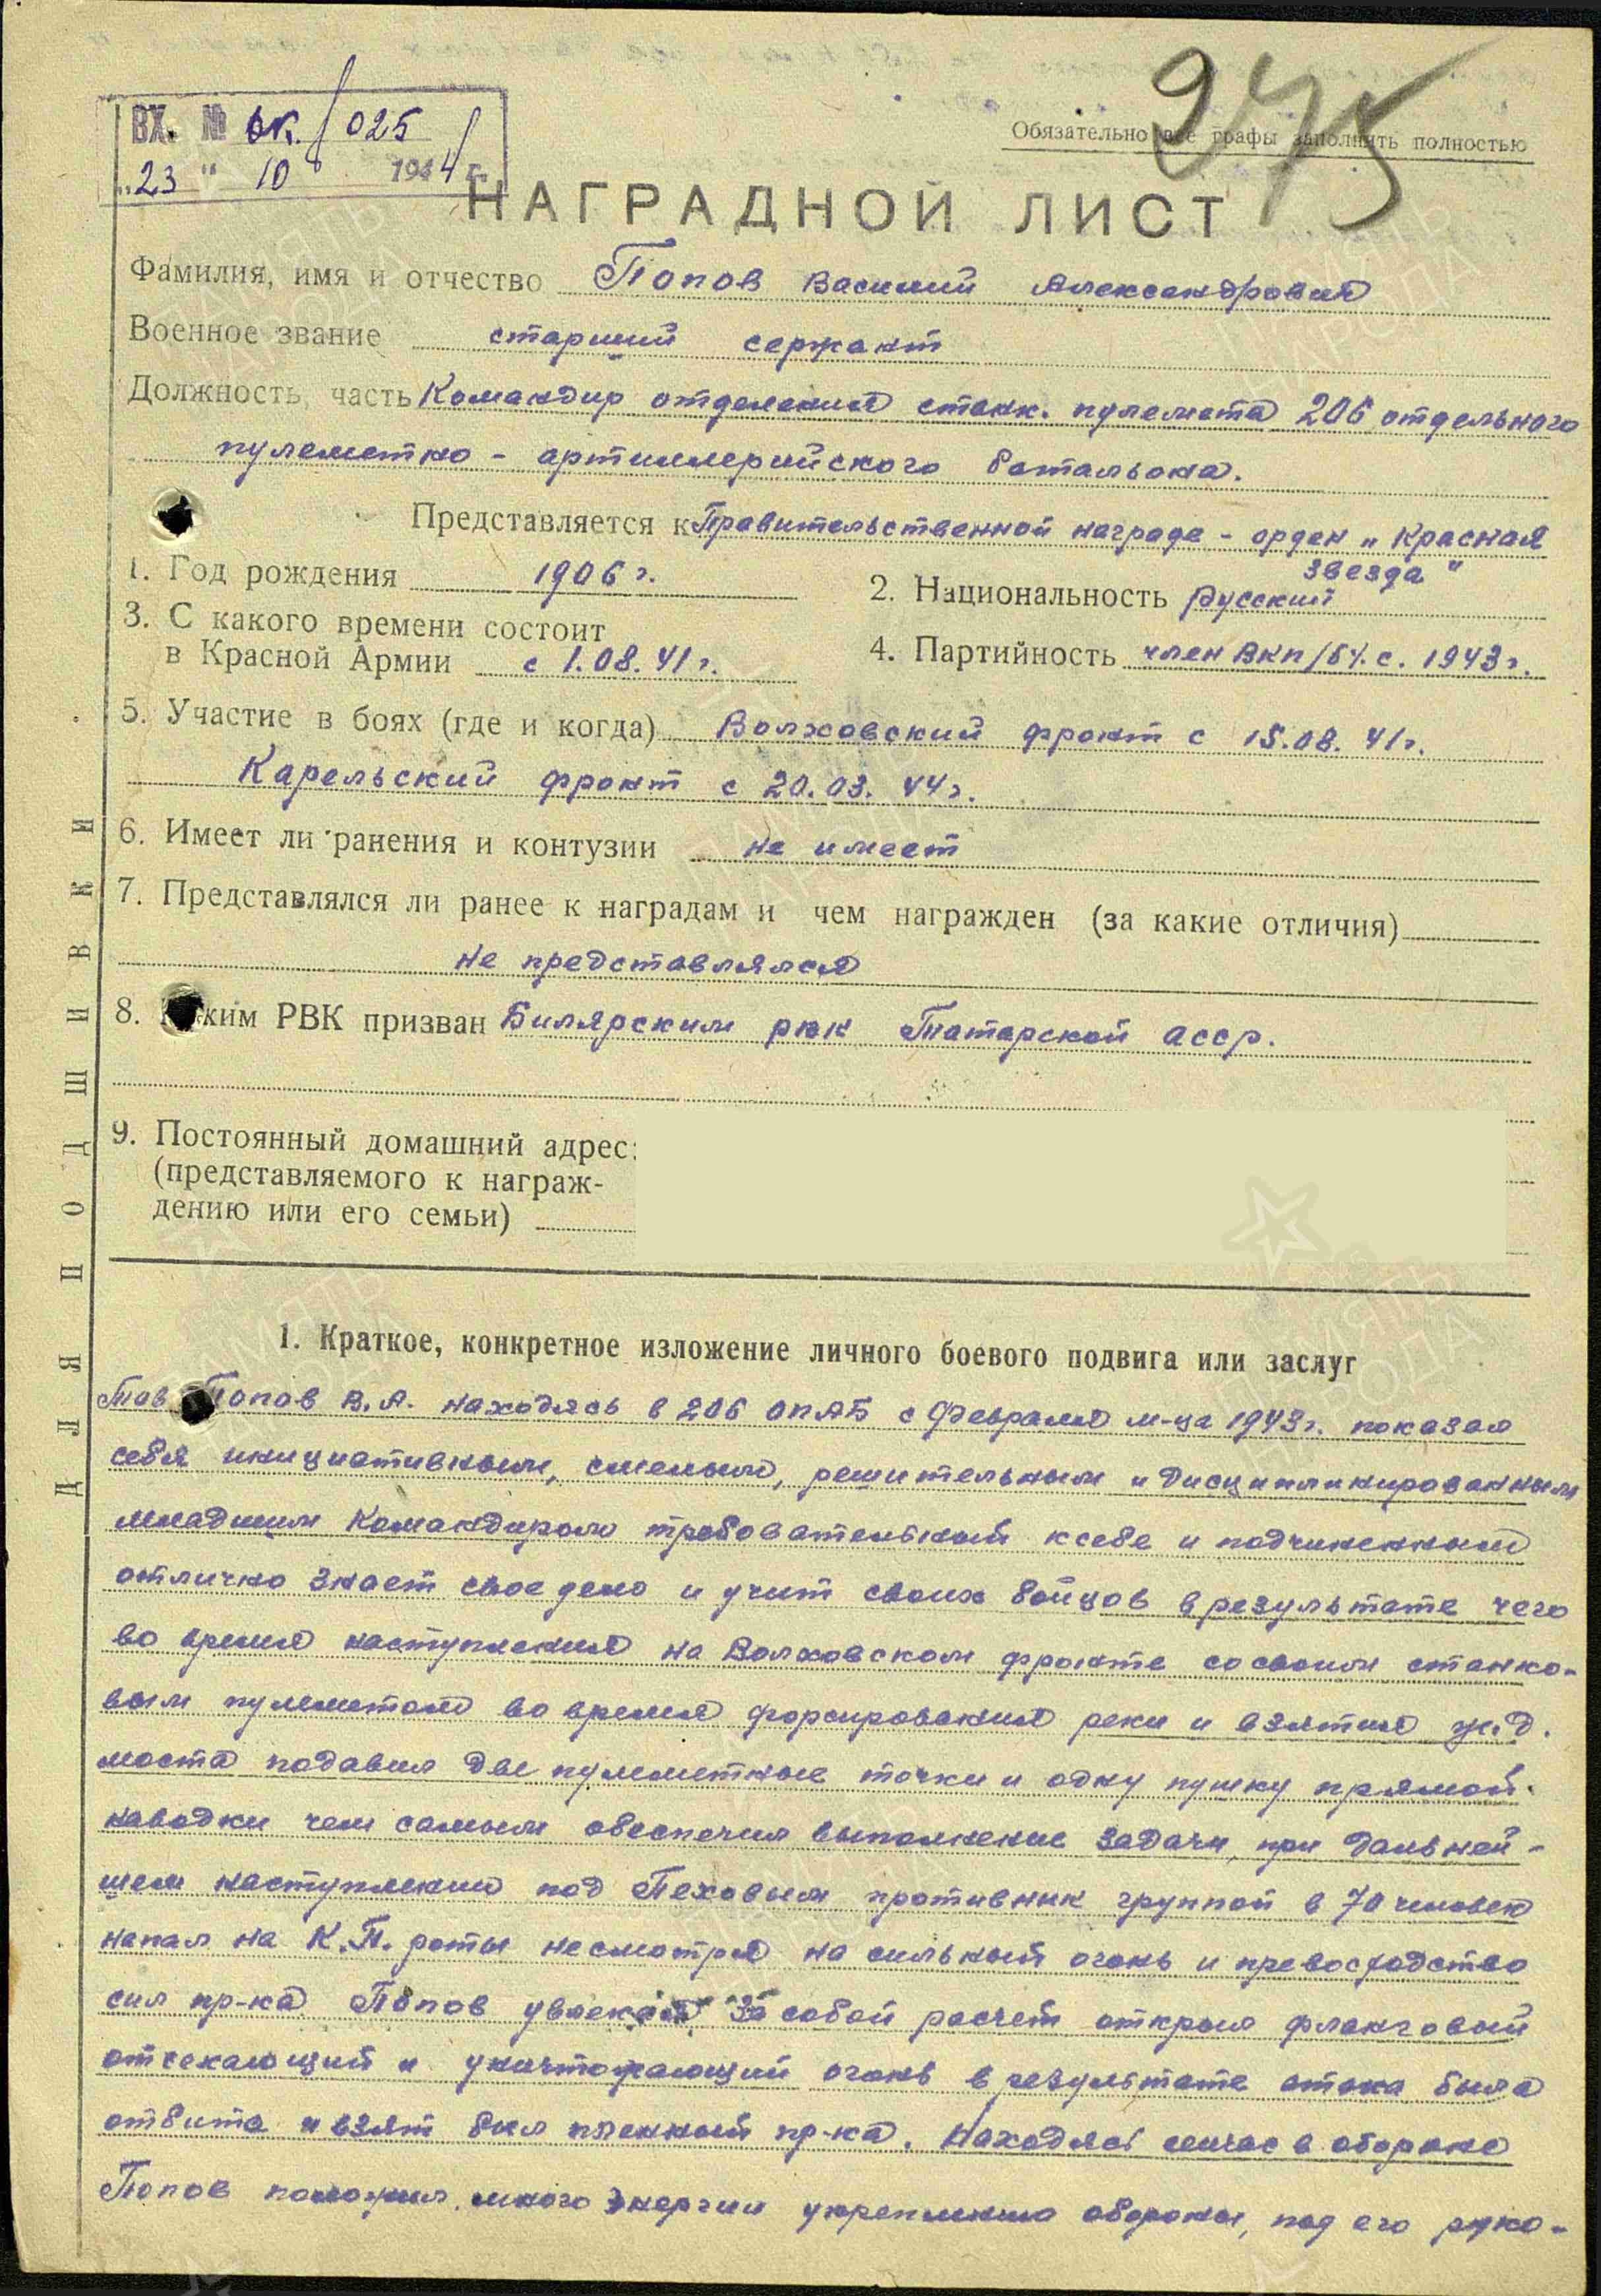 275
ВХ. № вк/025
Обязательно все графы заполнить полностью
„23 " 10 1944 г.
НАГРАДНОЙ ЛИСТ
Фамилия, имя и отчество Попов Василий Александрович
Военное звание старший сержант
Должность, часть Командир отделения станк. пулемета 206 отдельного
пулеметно - артиллерийского батальона.
Представляется к Правительственной награде - орден „Красная
звезда"
1. Год рождения 1906 г.
2. Национальность русский
3. С какого времени состоит
в Красной Армии с 1.08.41 г.
4. Партийность член ВКП/б/. с. 1943 г.
5. Участие в боях (где и когда) Волховский фронт с 15.08.41 г.
Карельский фронт с 20.03.44 г.
6. Имеет ли ранения и контузии не имеет
7. Представлялся ли ранее к наградам и чем награжден (за какие отличия)
не представлялся
8. ким РВК призван Билярским рвк Татарской асср.
9. Постоянный домашний адрес:
(представляемого к награж-
дению или его семьи)
ДЛЯ ПОДШИВКИ
1. Краткое, конкретное изложение личного боевого подвига или заслуг
Тов Попов В.А. находясь в 206 ОПАБ с февраля м-ца 1943 г. показал
себя инициативным, смелым, решительным и дисциплинированным
младшим командиром требовательный к себе и подчиненным
отлично знает свое дело и учит своих бойцов в результате чего
во время наступления на Волховском фронте со своим станко-
вым пулеметом во время форсирования реки и взятия ж.д.
моста подавил две пулеметные точки и одну пушку прямой
наводки чем самым обеспечил выполнение задачи, при дальней-
шем наступлении под Пеховым противник группой в 70 человек
напал на К.П. роты несмотря на сильный огонь и превосходство
сил пр-ка Попов увлекая за собой расчет открыл фланговый
отсекающий и уничтожающий огонь в результате атака была
отбита и взят был пленный пр-ка. Находясь сейчас в обороне
Попов положил много энергии укреплению обороны, под его руко-
ПАМЯТЬ НАРОДА